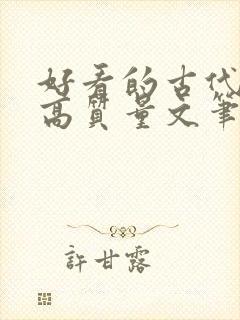 好看的古代
高质量文笔
許甘露